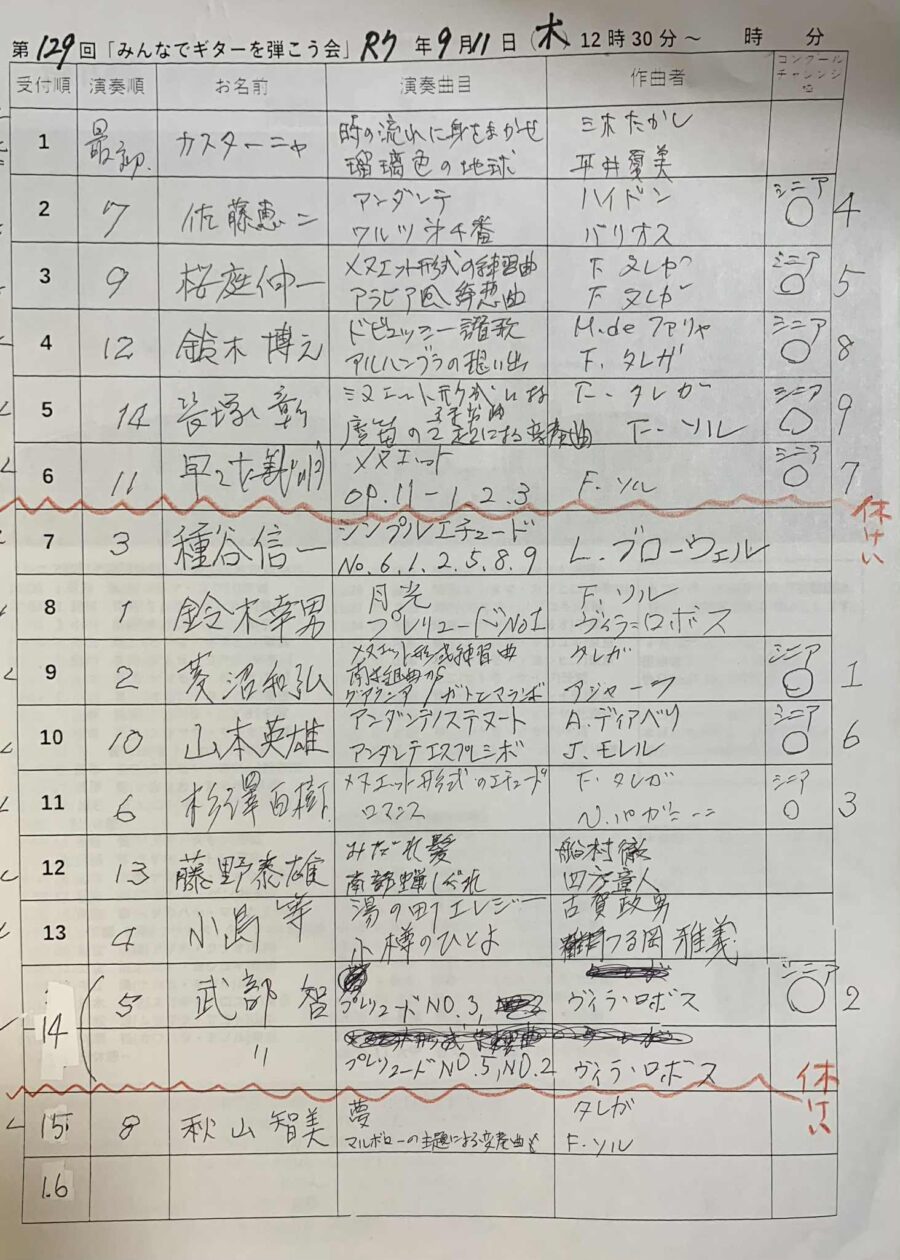 第129回「みんなでギターを弾こう会」R7年9月11日(木 12時30分~ 時 分
受付順 演奏順 お名前 演奏曲目 作曲者 コンクールチャレンジ
1 最初 カスターニャ 時の流れに身をまかせ 三木たかし
瑠璃色の地球 平井夏美
2 7 佐藤恵二 アンダンテ ハイドン シニア ○ 4
ワルツ第4番 バリオス
3 9 桜庭伸一 メヌエット形式の練習曲 F.タレガ シニア ○ 5
アラビア風綺想曲 F タレガ
4 12 鈴木博之 ドビュッシー讃歌 M.de ファリャ シニア ○ 8
アルハンブラの想い出 F.タレガ
5 14 長塚彰 F.タレガ シニア ○ 9
魔笛の F.ソル
6 11 メヌエット シニア ○ 7
OP.11-1.2.3 F.ソル
休けい
7 3 種谷信一 シンプルエチュード L.ブローウェル
No.6,1.2.5.8.9
8 1 鈴木幸男 月光 F.ソル
プレリュードNo1 ヴィラ=ロボス
9 2 菱沼和弘 メヌエット形式練習曲 タレガ シニア ○ 1
南米組曲から
グアラニア/ガトとマランボ アジャーラ
10 10 山本英雄 アンダンテ/ステヌート A.ディアベリ シニア ○ 6
アンダンテエスプレシボ J.モレル
11 6 杉澤百樹 メヌエット形式のエチュード F.タレガ シニア ○ 3
ロマンス N.パガニーニ
12 13 藤野泰雄 みだれ髪 船村徹
南部蝉しぐれ 四方章人
13 4 小島等 湯の町エレジー 古賀政男
小樽のひとよ つる岡雅義
14 5 武部智 プレリュードNO.3, ヴィラ・ロボス シニア ○ 2
〃 プレリュードNO.5,NO.2 ヴィラ・ロボス
休けい
15 8 秋山智美 夢 タレガ
マルボローの主題による変奏曲 F.ソル
16